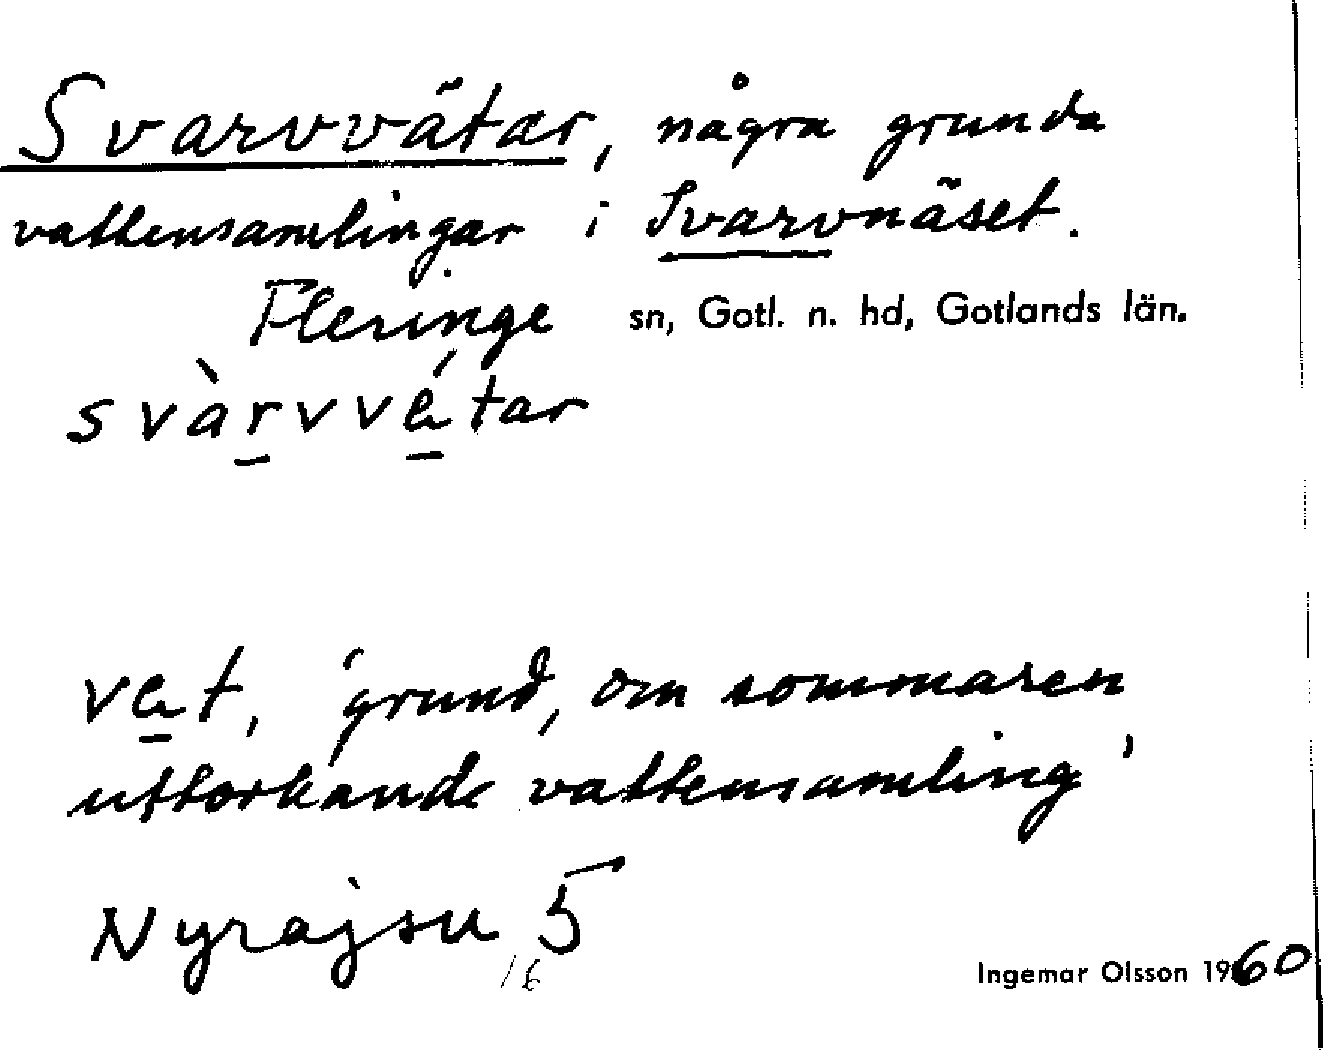 Svarvvätar, några grunda
vattensamlingar i Svarvnäset.
Fleringe sn, Gotl. n. hd, Gotlands län.
svàr̲vvé̲tar
ve̲t, 'grund, om sommaren
uttorkande vattensamling'
Nyrajsu 5
16
Ingemar Olsson 1960